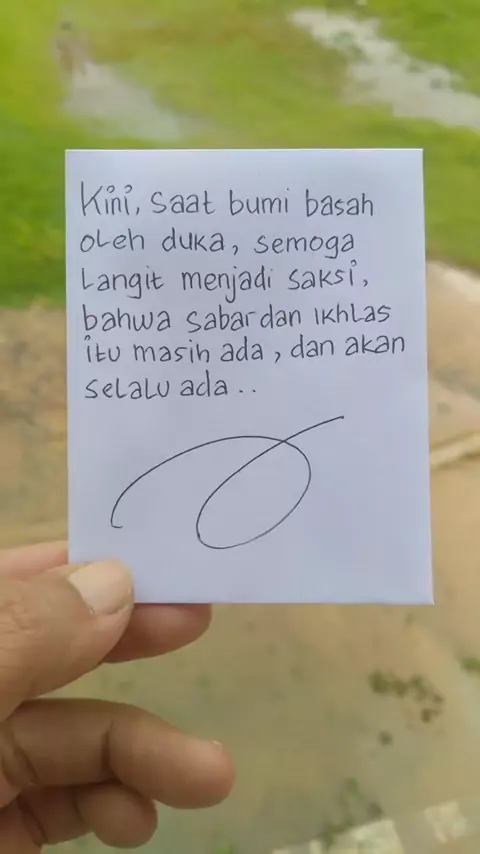 Kini, saat bumi basah
oleh duka, semoga
Langit menjadi saksi,
bahwa sabar dan ikhlas
itu masih ada, dan akan
selalu ada..